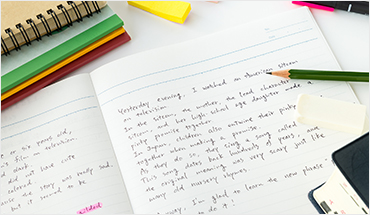 in six years old,
a film on television
did not have cute
colored
was really sad.
but it seemed to be
Yesterday evening, I watched an American sitcom
on television.
In the sitcom, the mother, the lead character
sitcom, and her high school age daughter made a
pinky promise together.
In Japan, children also entwine their pinky
together when making a promise.
As they do so, they sing a song called
This song dates back hundreds of years, and
the original meaning was very scary just like
many old nursery rhymes.
I'm glad to learn the new phrase